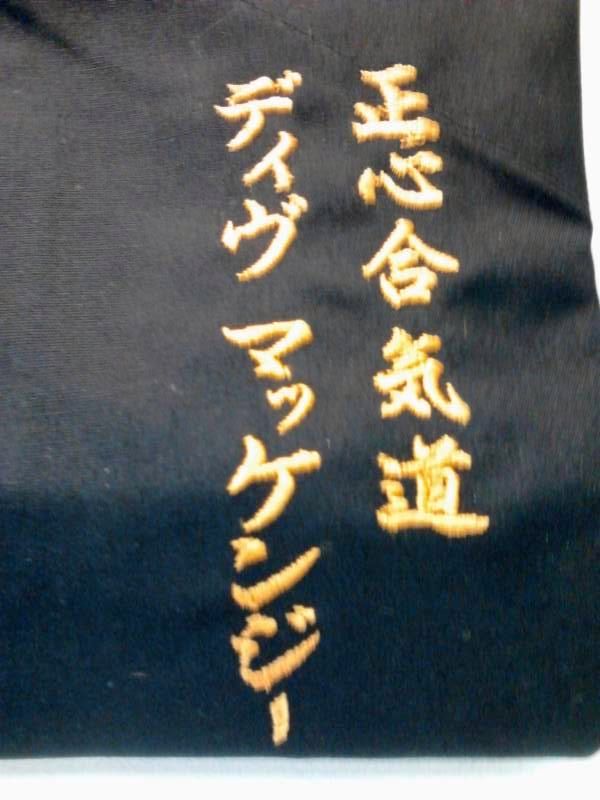 正心合気道
ディヴ マッケンジー